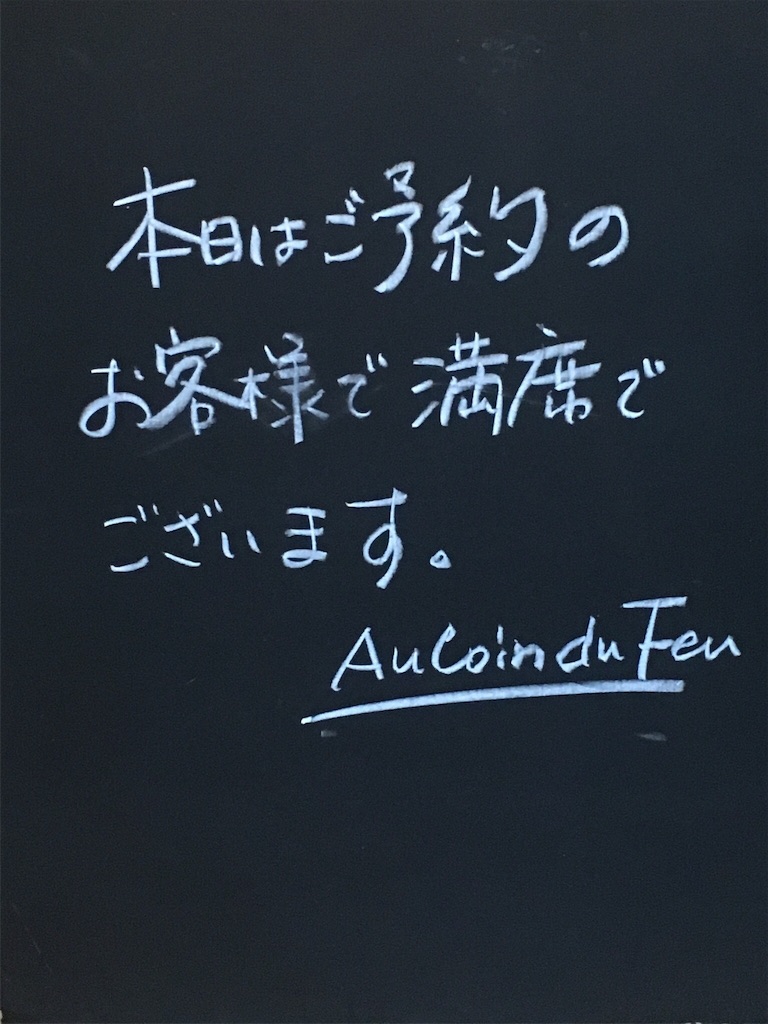 本日はご予約の
お客様で満席で
ございます。
Au Coin du Feu